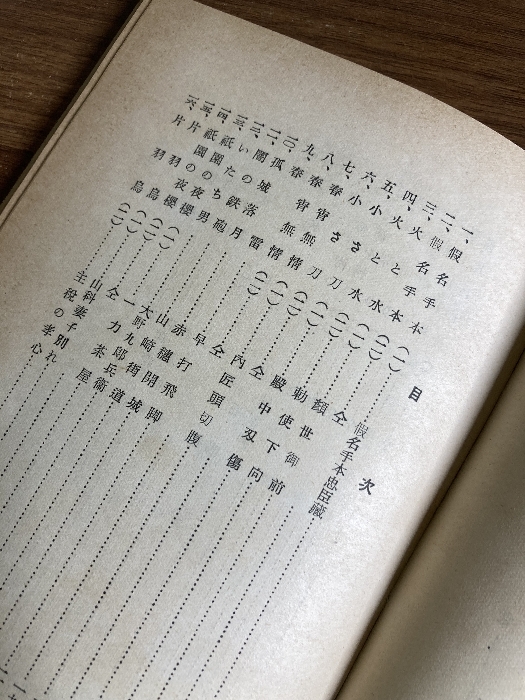 目次
一、假名手本(一)……假名手本忠臣藏
二、假名手本(二)……仝
三、火と水(一)……顏世御前
四、火と水(二)……勅使下向
五、小さ刀(一)……殿中刄傷
六、小さ刀(二)……仝
七、春宵無情(一)……内匠頭切腹
八、春宵無情(二)……仝
九、春雷……早打飛脚
一〇、孤城落月……赤穗開城
一一、闇の鉄砲……山崎街道
一二、いたち男……大野九郎兵衞
一三、祇園の夜櫻(一)……一力茶屋
一四、祇園の夜櫻(二)……仝
一五、片羽鳥(一)……山科妻子別れ
一六、片羽鳥(二)……主税の孝心